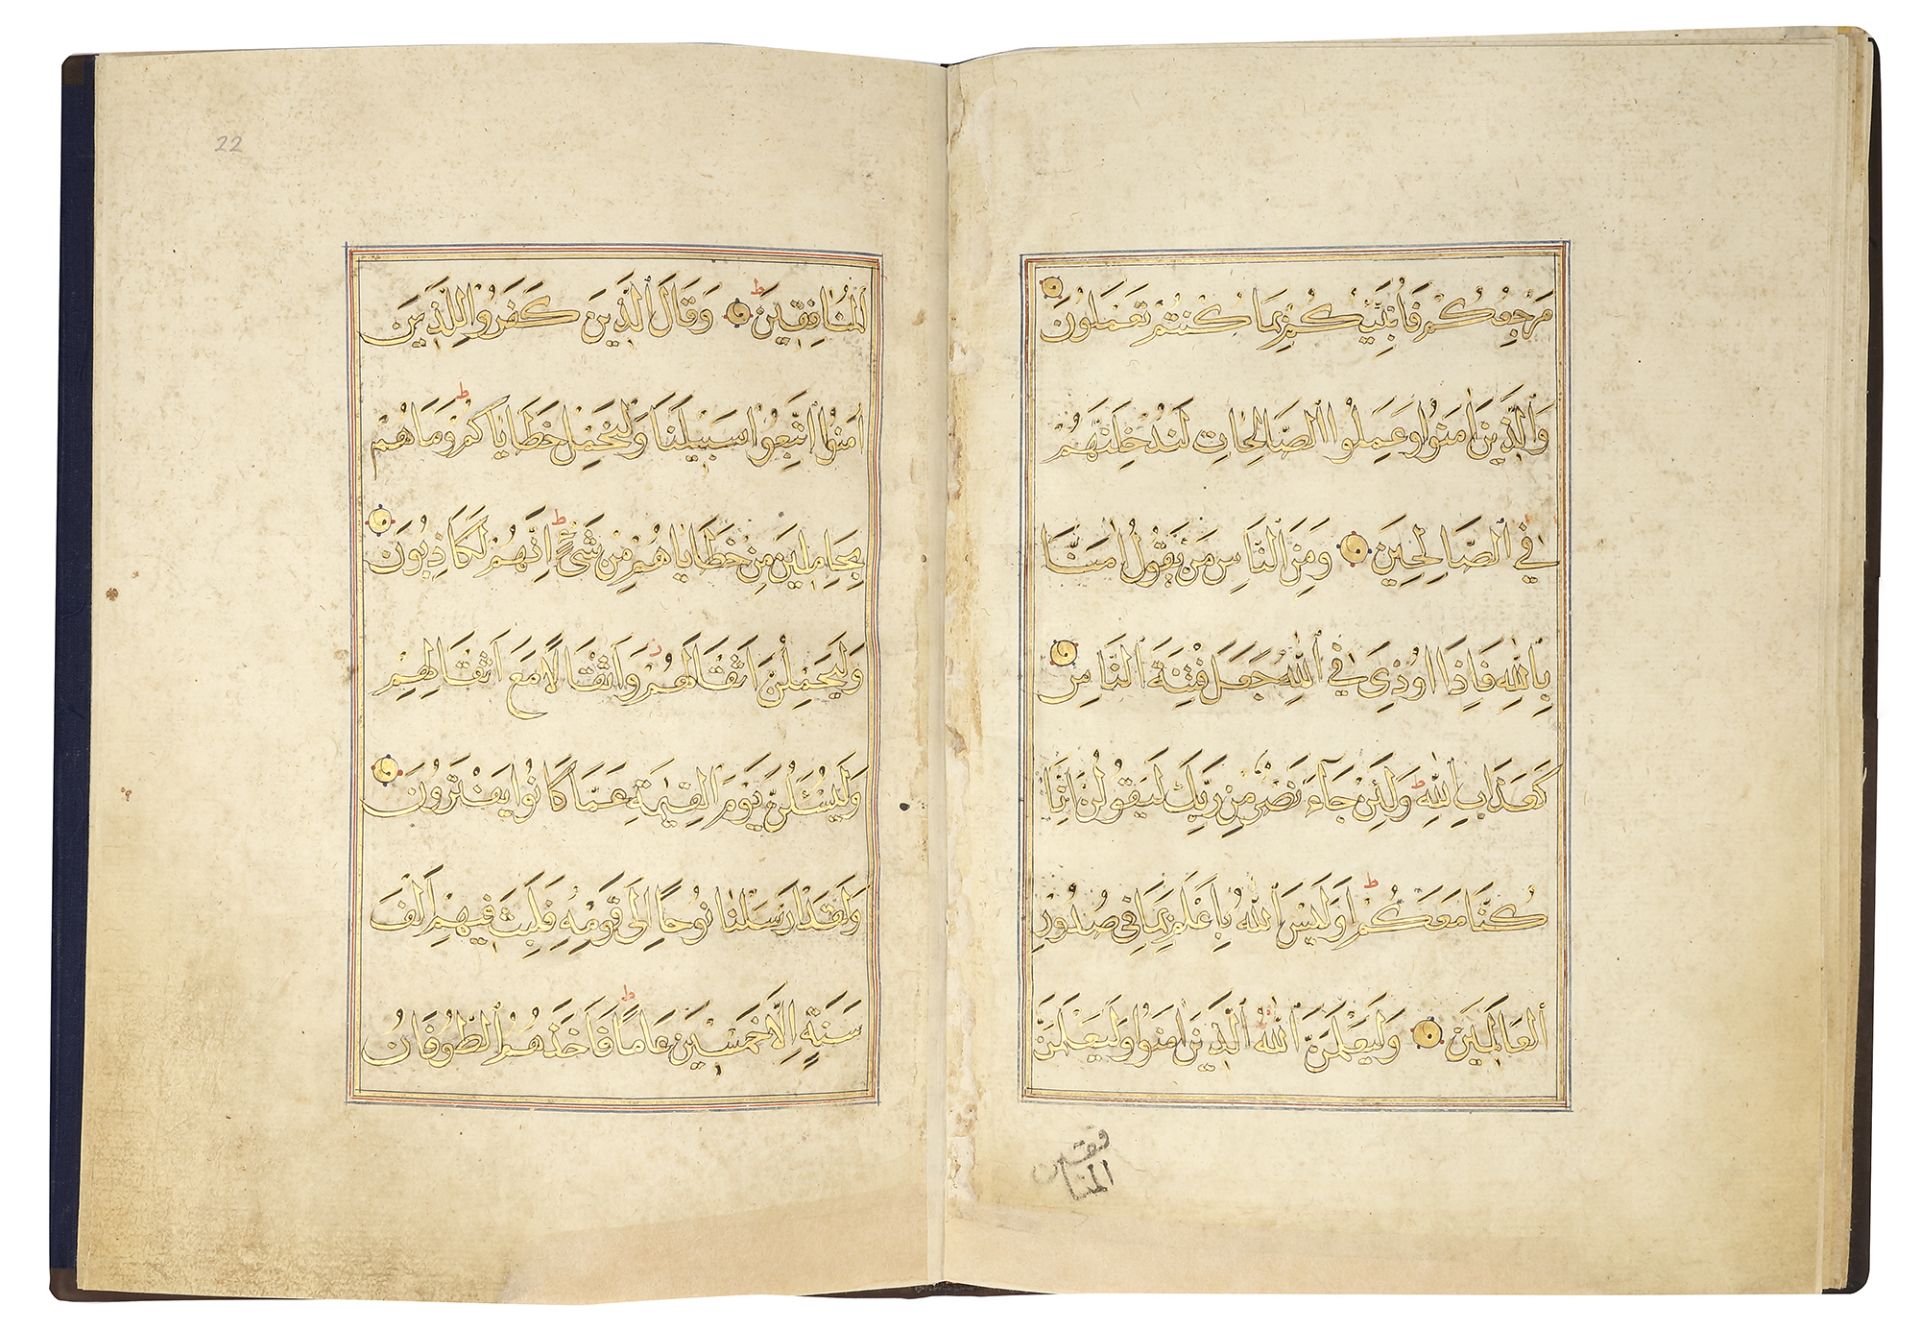 مَرْجِعُكُمْ فَأُنَبِّئُكُمْ بِمَا كُنْتُمْ تَعْمَلُونَ
وَٱلَّذِينَ اٰمَنُوا وَعَمِلُوا ٱلصَّالِحَاتِ لَنُدْخِلَنَّهُمْ
فِي ٱلصَّالِحِينَ وَمِنَ ٱلنَّاسِ مَنْ يَقُولُ اٰمَنَّا
بِٱللّٰهِ فَاِذَا اُوذِىَ فِي ٱللّٰهِ جَعَلَ فِتْنَةَ ٱلنَّاسِ
كَعَذَابِ ٱللّٰهِ ط وَلَئِنْ جَآءَ نَصْرٌ مِنْ رَبِّكَ لَيَقُولُنَّ اِنَّا
كُنَّا مَعَكُمْ ط اَوَلَيْسَ ٱللّٰهُ بِاَعْلَمَ بِمَا فِى صُدُورِ
ٱلْعَالَمِينَ وَلَيَعْلَمَنَّ ٱللّٰهُ ٱلَّذِينَ اٰمَنُوا وَلَيَعْلَمَنَّ
المنافقين
22
ٱلْمُنَافِقِينَ ط وَقَالَ ٱلَّذِينَ كَفَرُوا لِلَّذِينَ
اٰمَنُوا ٱتَّبِعُوا سَبِيلَنَا وَلْنَحْمِلْ خَطَايَاكُمْ ط وَمَا هُمْ
بِحَامِلِينَ مِنْ خَطَايَاهُمْ مِنْ شَىْءٍ ط اِنَّهُمْ لَكَاذِبُونَ
وَلَيَحْمِلُنَّ اَثْقَالَهُمْ وَاَثْقَالًا مَعَ اَثْقَالِهِمْ
وَلَيُسْـَٔلُنَّ يَوْمَ ٱلْقِيٰمَةِ عَمَّا كَانُوا يَفْتَرُونَ
وَلَقَدْ اَرْسَلْنَا نُوحًا اِلَى قَوْمِهِ فَلَبِثَ فِيهِمْ اَلْفَ
سَنَةٍ اِلَّا خَمْسِينَ عَامًا ط فَاَخَذَهُمُ ٱلطُّوفَانُ